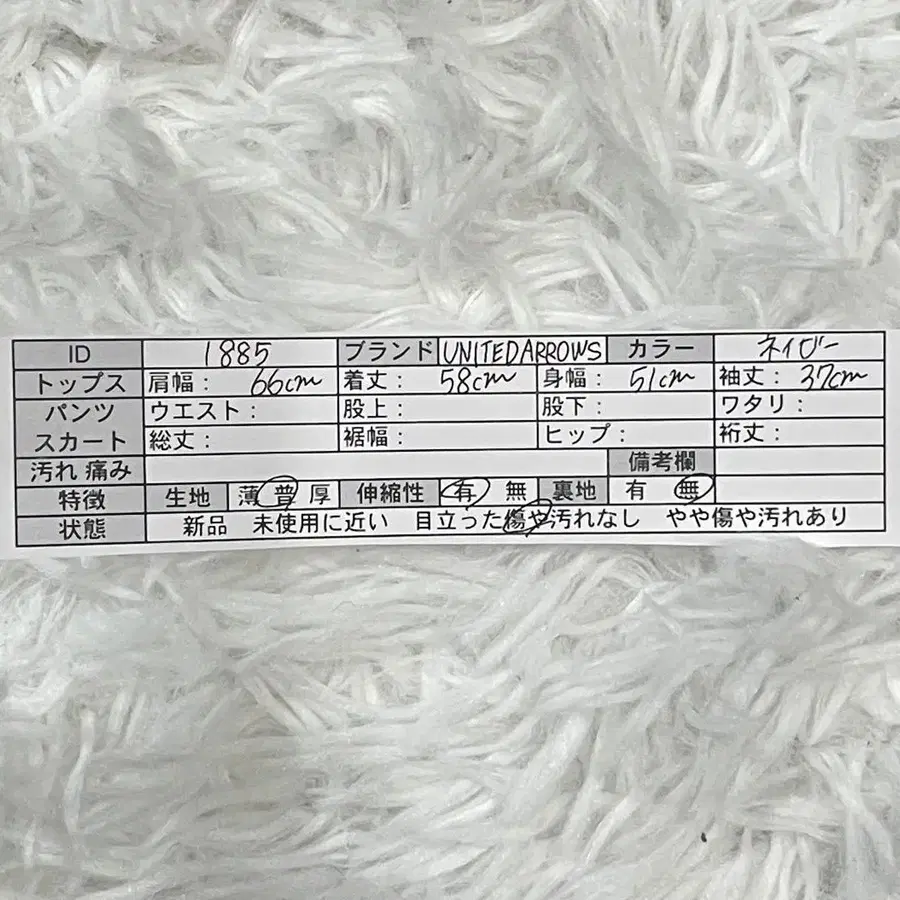 ID 1885 ブランド UNITED ARROWS カラー ネイビー
トップス 肩幅： 66cm 着丈： 58cm 身幅： 51cm 袖丈： 37cm
パンツ ウエスト： 股上： 股下： ワタリ：
スカート 総丈： 裾幅： ヒップ： 裄丈：
汚れ 痛み 備考欄
特徴 生地 薄 普 厚 伸縮性 有 無 裏地 有 無
状態 新品 未使用に近い 目立った傷や汚れなし やや傷や汚れあり